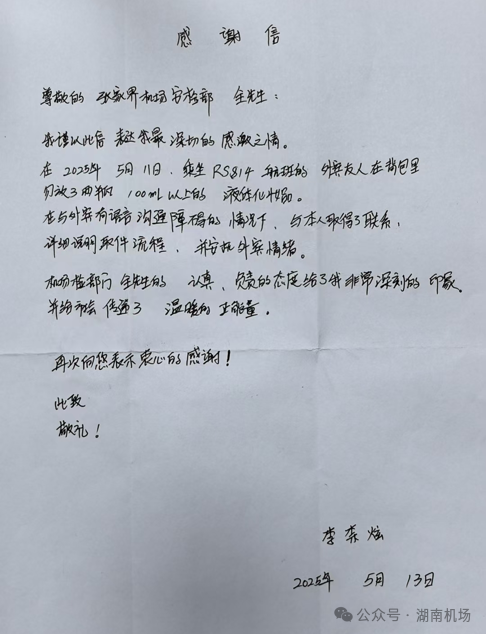 感 谢 信
尊敬的 张家界机场安检部 全先生：
我谨以此信 表达我最 深切的 感激之情。
在 2025年 5月11日，乘坐 RS814 航班的 外宾友人在背包里
放了两瓶 100ml以上的 液体化妆品。
在与外宾有语言沟通障碍的情况下，与本人取得了联系，
详细说明取件流程，并安抚外宾情绪。
机场安检部门 全先生的 认真、负责的态度给了我非常深刻的 印象。
传递了 温暖的 正能量。
再次向您表示衷心的感谢！
此致
敬礼！
李
2025年 5月 13日
公众号·湖南机场